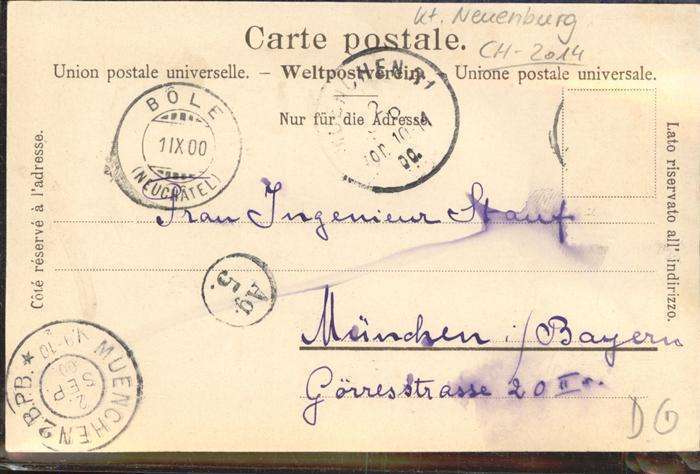 Kt. Neuenburg
CH-2014
Carte postale.
Union postale universelle. – Weltpostverein. Unione postale universale.
Nur für die Adresse.
Côté réservé à l'adresse.
Lato riservato all' indirizzo.
BÔLE
1 IX 00
(NEUCHÂTEL)
MUENCHEN
00.
Frau Ingenieur Stauf
Ag.
5.
München i/Bayern
Görresstrasse 20 II
MUENCHEN 2 B.P.B.
2
SEP
00
D G